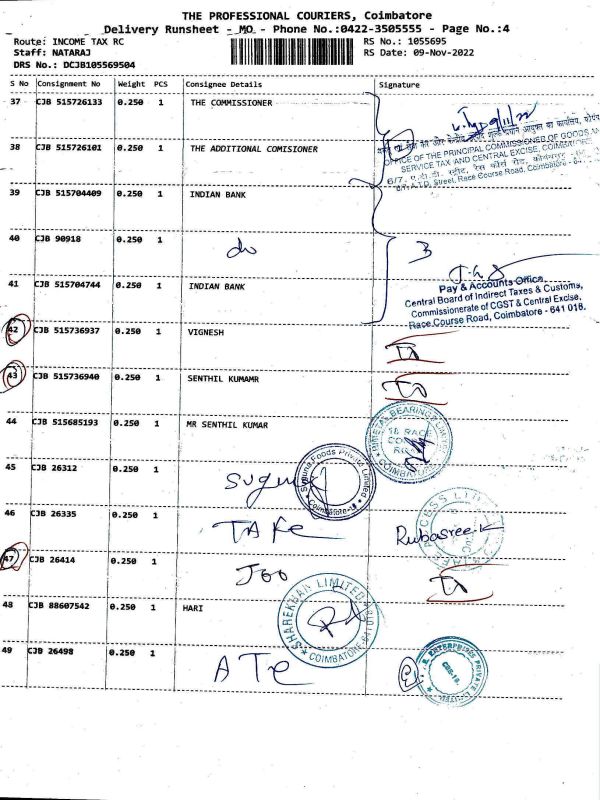 THE PROFESSIONAL COURIERS, Coimbatore
Delivery Runsheet - MO - Phone No.:0422-3505555 - Page No.:4
Route: INCOME TAX RC
Staff: NATARAJ
DRS No.: DCJB105569504
RS No.: 1055695
RS Date: 09-Nov-2022
S No Consignment No Weight PCS Consignee Details Signature
37 CJB 515726133 0.250 1 THE COMMISSIONER
38 CJB 515726101 0.250 1 THE ADDITIONAL COMISIONER
OFFICE OF THE PRINCIPAL COMMISSIONER OF GOODS AND
SERVICE TAX AND CENTRAL EXCISE, COIMBATORE
6/7, A.T.D. Street, Race Course Road, Coimbatore
39 CJB 515704409 0.250 1 INDIAN BANK
40 CJB 90918 0.250 1 do 3
41 CJB 515704744 0.250 1 INDIAN BANK
Pay & Accounts Office,
Central Board of Indirect Taxes & Customs,
Commissionerate of CGST & Central Excise,
Race Course Road, Coimbatore - 641 018.
42 CJB 515736937 0.250 1 VIGNESH
43 CJB 515736940 0.250 1 SENTHIL KUMAMR
44 CJB 515685193 0.250 1 MR SENTHIL KUMAR
BIMETAL BEARINGS LIMITED
18 RACE
COURSE
ROAD
COIMBATORE
45 CJB 26312 0.250 1 Suguna
Suguna Foods Private Limited
Coimbatore-18
46 CJB 26335 0.250 1 TAKE Rubasree.K
47 CJB 26414 0.250 1
48 CJB 88607542 0.250 1 HARI
SHAREKHAN LIMITED
COIMBATORE
49 CJB 26498 0.250 1 ATe
ENTERPRISES PRIVATE LIMITED
CBE-18.